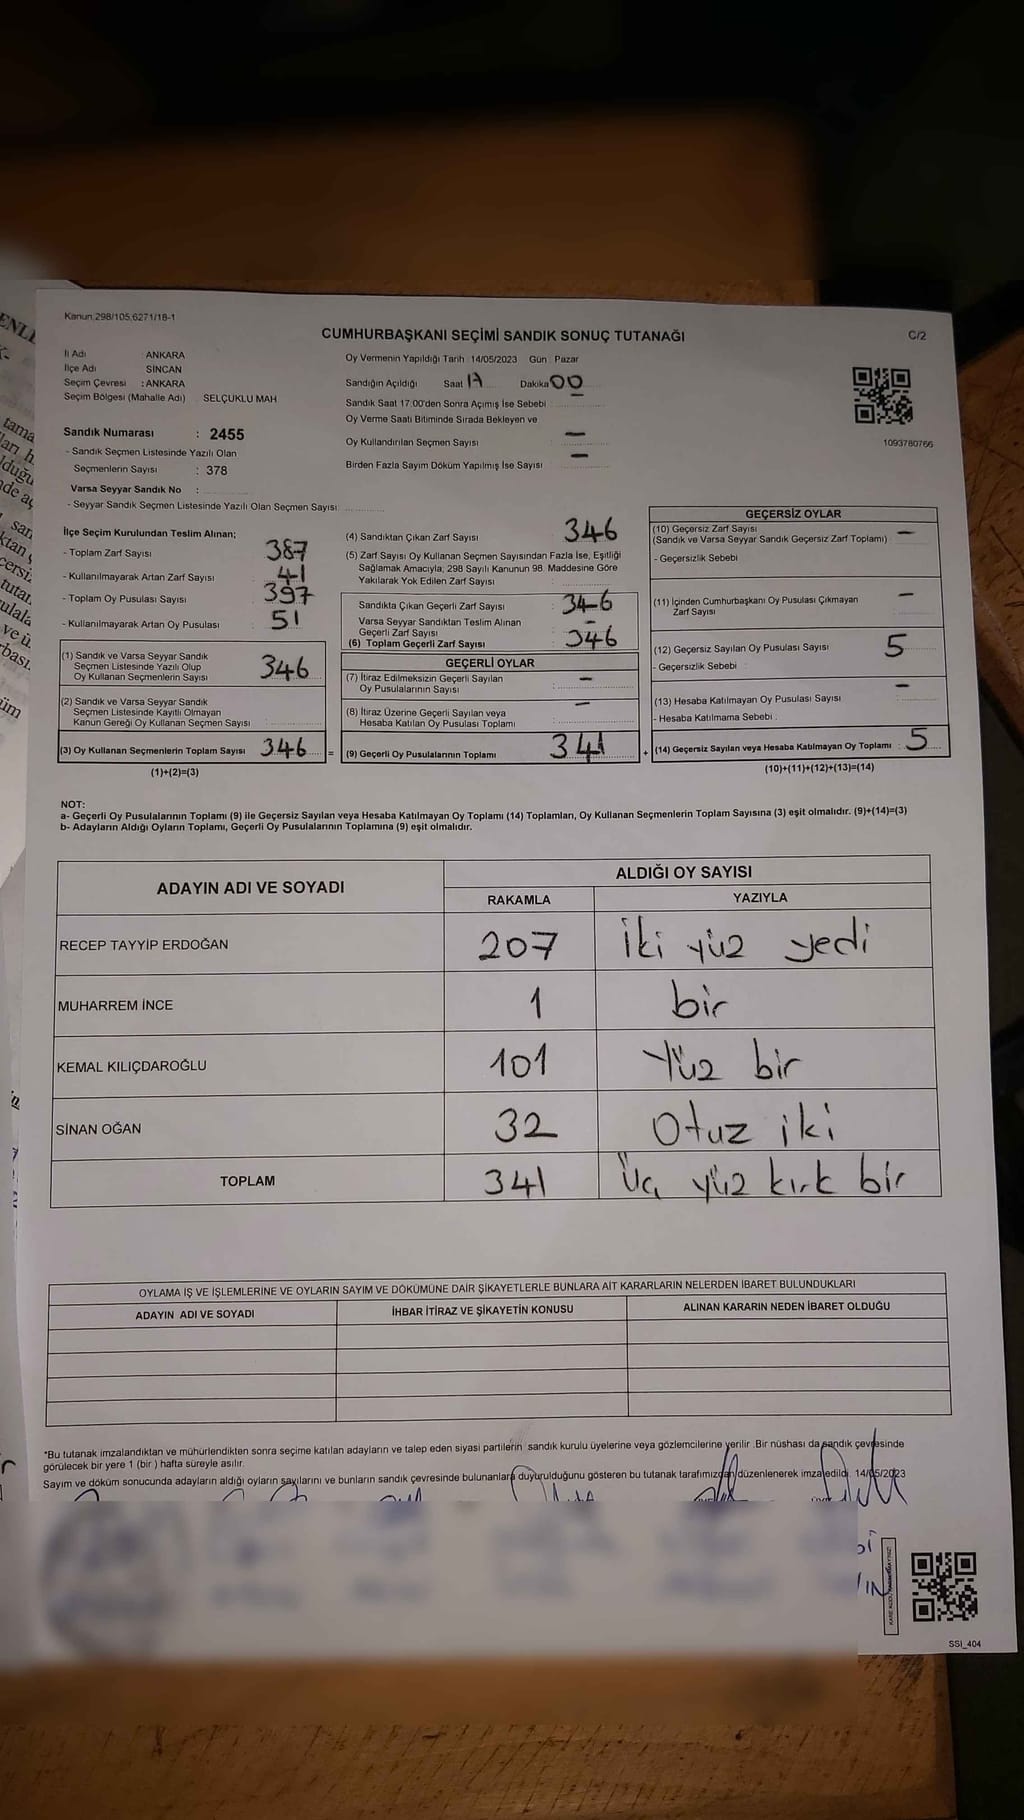 Kanun 298/105,6271/18-1
CUMHURBAŞKANI SEÇİMİ SANDIK SONUÇ TUTANAĞI
C/2
İl Adı : ANKARA
İlçe Adı : SİNCAN
Seçim Çevresi : ANKARA
Seçim Bölgesi (Mahalle Adı) SELÇUKLU MAH
Sandık Numarası : 2455
- Sandık Seçmen Listesinde Yazılı Olan
Seçmenlerin Sayısı : 378
Varsa Seyyar Sandık No :
- Seyyar Sandık Seçmen Listesinde Yazılı Olan Seçmen Sayısı:
Oy Vermenin Yapıldığı Tarih 14/05/2023 Gün Pazar
Sandığın Açıldığı Saat 17 Dakika 00
Sandık Saat 17:00'den Sonra Açımış İse Sebebi
Oy Verme Saati Bitiminde Sırada Bekleyen ve
Oy Kullandırılan Seçmen Sayısı —
Birden Fazla Sayım Döküm Yapılmış İse Sayısı —
1093780766
İlçe Seçim Kurulundan Teslim Alınan;
- Toplam Zarf Sayısı : 387
- Kullanılmayarak Artan Zarf Sayısı : 41
- Toplam Oy Pusulası Sayısı : 397
- Kullanılmayarak Artan Oy Pusulası : 51
(1) Sandık ve Varsa Seyyar Sandık
Seçmen Listesinde Yazılı Olup
Oy Kullanan Seçmenlerin Sayısı 346
(2) Sandık ve Varsa Seyyar Sandık
Seçmen Listesinde Kayıtlı Olmayan
Kanun Gereği Oy Kullanan Seçmen Sayısı
(3) Oy Kullanan Seçmenlerin Toplam Sayısı 346 =
(1)+(2)=(3)
(4) Sandıktan Çıkan Zarf Sayısı : 346
(5) Zarf Sayısı Oy Kullanan Seçmen Sayısından Fazla İse, Eşitliği
Sağlamak Amacıyla; 298 Sayılı Kanunun 98. Maddesine Göre
Yakılarak Yok Edilen Zarf Sayısı :
Sandıkta Çıkan Geçerli Zarf Sayısı : 346
Varsa Seyyar Sandıktan Teslim Alınan
Geçerli Zarf Sayısı : —
(6) Toplam Geçerli Zarf Sayısı : 346
GEÇERLİ OYLAR
(7) İtiraz Edilmeksizin Geçerli Sayılan
Oy Pusulalarının Sayısı : —
(8) İtiraz Üzerine Geçerli Sayılan veya
Hesaba Katılan Oy Pusulası Toplamı : —
(9) Geçerli Oy Pusulalarının Toplamı : 341 +
GEÇERSİZ OYLAR
(10) Geçersiz Zarf Sayısı
(Sandık ve Varsa Seyyar Sandık Geçersiz Zarf Toplamı) —
- Geçersizlik Sebebi
(11) İçinden Cumhurbaşkanı Oy Pusulası Çıkmayan
Zarf Sayısı —
(12) Geçersiz Sayılan Oy Pusulası Sayısı 5
- Geçersizlik Sebebi :
(13) Hesaba Katılmayan Oy Pusulası Sayısı —
- Hesaba Katılmama Sebebi :
(14) Geçersiz Sayılan veya Hesaba Katılmayan Oy Toplamı : 5
(10)+(11)+(12)+(13)=(14)
NOT:
a- Geçerli Oy Pusulalarının Toplamı (9) ile Geçersiz Sayılan veya Hesaba Katılmayan Oy Toplamı (14) Toplamları, Oy Kullanan Seçmenlerin Toplam Sayısına (3) eşit olmalıdır. (9)+(14)=(3)
b- Adayların Aldığı Oyların Toplamı, Geçerli Oy Pusulalarının Toplamına (9) eşit olmalıdır.
ADAYIN ADI VE SOYADI
ALDIĞI OY SAYISI
RAKAMLA YAZIYLA
RECEP TAYYİP ERDOĞAN 207 iki yüz yedi
MUHARREM İNCE 1 bir
KEMAL KILIÇDAROĞLU 101 Yüz bir
SİNAN OĞAN 32 Otuz iki
TOPLAM 341 Üç yüz kırk bir
OYLAMA İŞ VE İŞLEMLERİNE VE OYLARIN SAYIM VE DÖKÜMÜNE DAİR ŞİKAYETLERLE BUNLARA AİT KARARLARIN NELERDEN İBARET BULUNDUKLARI
ADAYIN ADI VE SOYADI İHBAR İTİRAZ VE ŞİKAYETİN KONUSU ALINAN KARARIN NEDEN İBARET OLDUĞU
*Bu tutanak imzalandıktan ve mühürlendikten sonra seçime katılan adayların ve talep eden siyasi partilerin sandık kurulu üyelerine veya gözlemcilerine verilir .Bir nüshası da sandık çevresinde
görülecek bir yere 1 (bir ) hafta süreyle asılır.
Sayım ve döküm sonucunda adayların aldığı oyların sayılarını ve bunların sandık çevresinde bulunanlara duyurulduğunu gösteren bu tutanak tarafımızdan düzenlenerek imza edildi. 14/05/2023
SSİ_404